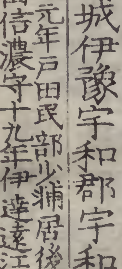 城伊豫宇和郡宇和
元年戸田民部少輔居後
信濃守十九年伊達遠江